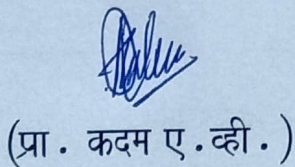 (प्रा. कदम ए.व्ही.)